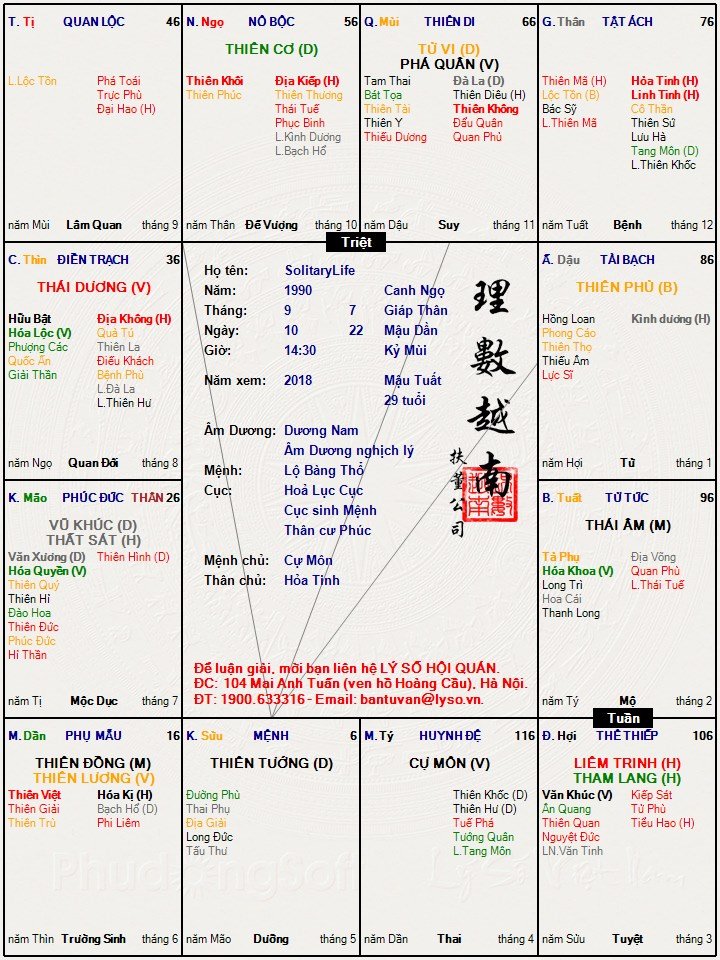 T. Tị QUAN LỘC 46
L.Lộc Tồn
Phá Toái
Trực Phù
Đại Hao (H)
năm Mùi Lâm Quan tháng 9
N. Ngọ NÔ BỘC 56
THIÊN CƠ (D)
Thiên Khôi
Thiên Phúc
Địa Kiếp (H)
Thiên Thương
Thái Tuế
Phục Binh
L.Kình Dương
L.Bạch Hổ
năm Thân Đế Vượng tháng 10
Q. Mùi THIÊN DI 66
TỬ VI (D)
PHÁ QUÂN (V)
Tam Thai
Bát Tọa
Thiên Tài
Thiên Y
Thiếu Dương
Đà La (D)
Thiên Diêu (H)
Thiên Không
Đẩu Quân
Quan Phủ
năm Dậu Suy tháng 11
G. Thân TẬT ÁCH 76
Thiên Mã (H)
Lộc Tồn (B)
Bác Sỹ
L.Thiên Mã
Hỏa Tinh (H)
Linh Tinh (H)
Cô Thần
Thiên Sứ
Lưu Hà
Tang Môn (D)
L.Thiên Khốc
năm Tuất Bệnh tháng 12
Triệt
C. Thìn ĐIỀN TRẠCH 36
THÁI DƯƠNG (V)
Hữu Bật
Hóa Lộc (V)
Phượng Các
Quốc Ấn
Giải Thần
Địa Không (H)
Quả Tú
Thiên La
Điếu Khách
Bệnh Phù
L.Đà La
L.Thiên Hư
năm Ngọ Quan Đới tháng 8
Họ tên: SolitaryLife
Năm: 1990 Canh Ngọ
Tháng: 9 7 Giáp Thân
Ngày: 10 22 Mậu Dần
Giờ: 14:30 Kỷ Mùi
Năm xem: 2018 Mậu Tuất
29 tuổi
Âm Dương: Dương Nam
Âm Dương nghịch lý
Mệnh: Lộ Bàng Thổ
Cục: Hoả Lục Cục
Cục sinh Mệnh
Thân cư Phúc
Mệnh chủ: Cự Môn
Thân chủ: Hỏa Tinh
理數越南
扶董公司
Để luận giải, mời bạn liên hệ LÝ SỐ HỘI QUÁN.
ĐC: 104 Mai Anh Tuấn (ven hồ Hoàng Cầu), Hà Nội.
ĐT: 1900.633316 - Email: bantuvan@lyso.vn.
Ấ. Dậu TÀI BẠCH 86
THIÊN PHỦ (B)
Hồng Loan
Phong Cáo
Thiên Thọ
Thiếu Âm
Lực Sĩ
Kình dương (H)
năm Hợi Tử tháng 1
K. Mão PHÚC ĐỨC THÂN 26
VŨ KHÚC (D)
THẤT SÁT (H)
Văn Xương (D)
Hóa Quyền (V)
Thiên Quý
Thiên Hỉ
Đào Hoa
Thiên Đức
Phúc Đức
Hỉ Thần
Thiên Hình (D)
năm Tị Mộc Dục tháng 7
B. Tuất TỬ TỨC 96
THÁI ÂM (M)
Tả Phụ
Hóa Khoa (V)
Long Trì
Hoa Cái
Thanh Long
Địa Võng
Quan Phù
L.Thái Tuế
năm Tý Mộ tháng 2
Tuần
M. Dần PHỤ MẪU 16
THIÊN ĐỒNG (M)
THIÊN LƯƠNG (V)
Thiên Việt
Thiên Giải
Thiên Trù
Hóa Kị (H)
Bạch Hổ (D)
Phi Liêm
năm Thìn Trường Sinh tháng 6
K. Sửu MỆNH 6
THIÊN TƯỚNG (D)
Đường Phù
Thai Phụ
Địa Giải
Long Đức
Tấu Thư
năm Mão Dưỡng tháng 5
M. Tý HUYNH ĐỆ 116
CỰ MÔN (V)
Thiên Khốc (D)
Thiên Hư (D)
Tuế Phá
Tướng Quân
L.Tang Môn
năm Dần Thai tháng 4
Đ. Hợi THÊ THIẾP 106
LIÊM TRINH (H)
THAM LANG (H)
Văn Khúc (V)
Ân Quang
Thiên Quan
Nguyệt Đức
LN.Văn Tinh
Kiếp Sát
Tử Phù
Tiểu Hao (H)
năm Sửu Tuyệt tháng 3